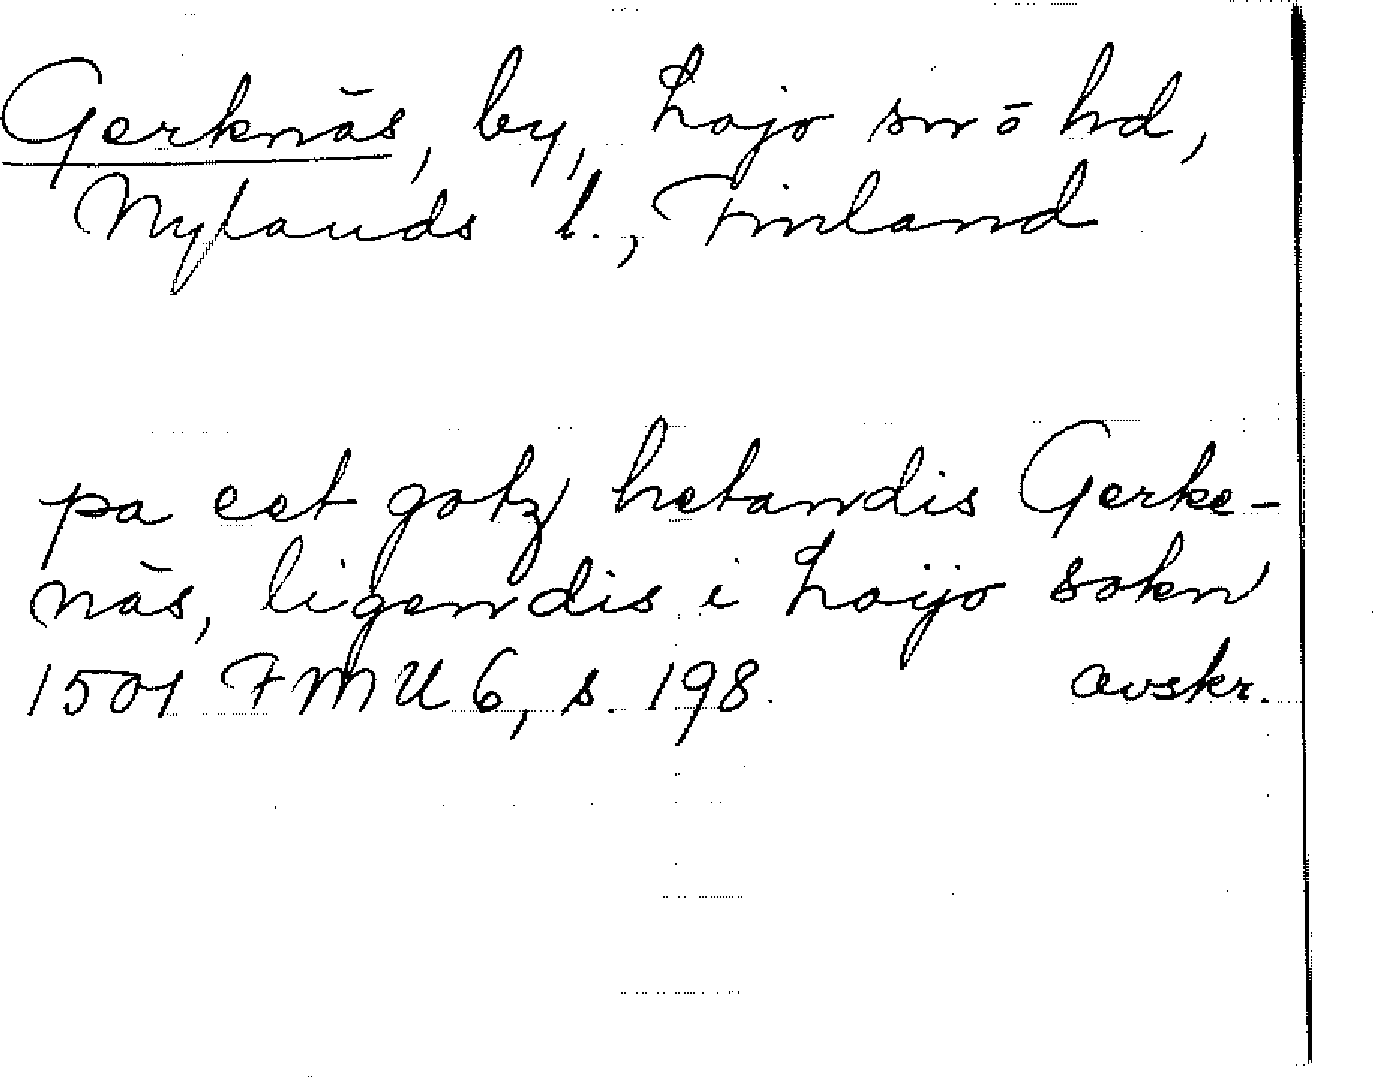 Gerknäs, by, Lojo sn o hd,
Nylands l., Finland
pa eet gotz hetandis Gerke-
näs, ligendis i Loijo sokn
1501 FMU 6, s. 198. avskr.